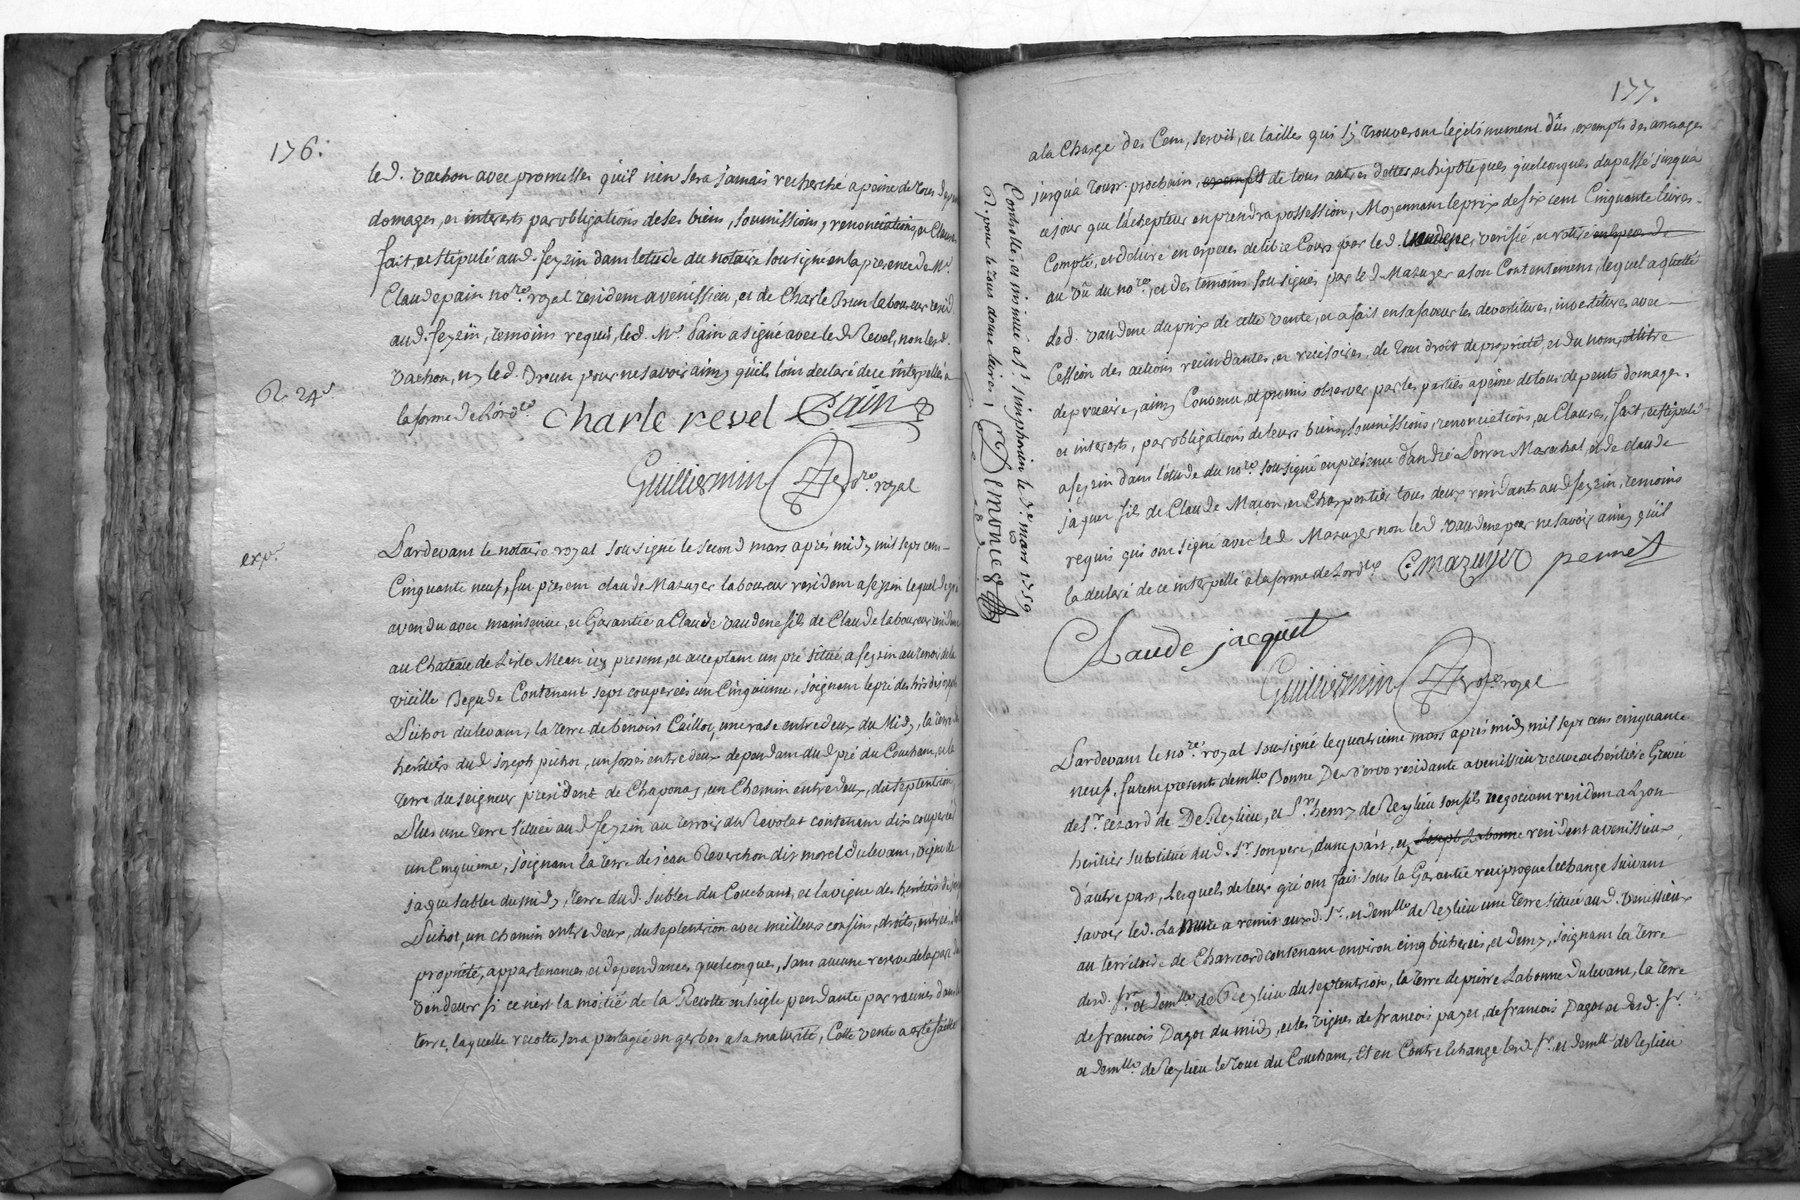 176.
led. vachon avec promesses quil n'en sera jamais recherché a peine de tous
domages, et interests par obligations de ses biens, soumissions, renonciations, et Clauses
fait, et stipulé aud. feyzin dans letude du notaire sousigné en la presence de Mr.
Claude pain nore. royal resident a venissieu, et de Charle Brun laboureur resid.
aud. feyzin, temoins requis, led. Mr. pain a signé avec led Revel, non led.
vachon, ny led. Brun pour ne savoir ainsy quils lont declaré de ce interpellés a
la forme de Lordce.
charle revel Pain
Guilliermin Nore. royal
expé.
Pardevant le notaire royal sousigné le second mars aprés midy mil sept cent
Cinquante neuf, fut present claude Mazuyer laboureur resident a feyzin lequel de gré
a vendu avec maintenue, et Garantie a Claude vaudene fils de Claude laboureur
au Chateau de Lisle Mean icy present, et acceptant un pré situé a feyzin au terroir de la
vieille Begude Contenant sept couperées un Cinquieme, joignant le pré des
Pichot du levant, la terre de benoist Caillot, une rase entre deux du Midy, la terre
heritiers dud joseph pichot, un fossés entre deux dependant dud pré du Couchant, et la
Terre du seigneur president de Chaponay, un Chemin entre deux, du septentrion,
Plus une terre située aud feyzin au terroir du Revolat contenant dix couperées
un Cinquieme, joignant la terre de jean Reverchon dit morel du levant, vigne de
jaque sublet du midy, terre dud. sublet du Couchant, et la vigne des heritiers de
Pichot, un chemin entre deux, du septentrion avec meilleurs confins, droits, entrées,
proprieté, appartenances et dependances quelconques, sans aucune reserve de la part du
vendeur si ce n'est la moitié de la Recolte en seigle pendante par racines dans la
terre, laquelle recolte sera partagée en gerbes a sa maturité, Cette vente a eté faitte
177.
a la Charge des Cens, servit, et tailles qui s'y trouveront légitimement dûs, exempts des arrerages
jusqu'a Jour prochain, exempts de tous autres dettes et hipoteques quelconques du passé jusqu'a
ce jour que lacchepteur en prendra possession, Moyennant le prix de six cent Cinquante livres
Compté, et delivré en especes de libre Cours par led. vaudene, verifié, et retiré en espece de
au vû du nore., et des temoins sousignés par led Mazuyer a son Contentement, lequel a quitté
Led. vaudene du prix de cette vente, et a fait en sa faveur les devestitures, investitures avec
Cession des actions recindantes, et recisoires, de tous droit de proprieté, et du nom, et titre
de precaire, ainsy Convenu, et promis observer par les parties a peine de tous depents domages,
et interets, par obligations de leurs biens, soumissions, renonciations, et Clauses, fait, et stipulé
a feyzin dans letude du nore. sousigné en presence d'andré Perret Marechal, et de claude
jaquet fils de Claude Maçon, et Charpentier tous deux residants aud feyzin, temoins
requis qui ont signé avec led Mazuyer non led vaudene pour ne savoir ainsy quil
la declaré de ce interpellé a la forme de Lordce. C mazuyer perret
Claude jacquet
Guilliermin Nore. royal
Controllé, et insinué a St. simphorien le 3e. mars 1759
R. pour le tout douze livres,
Demonceg
Pardevant le nore. royal sousigné le quatrieme mars aprés midy mil sept cens cinquante
neuf. furent presents demlle. Bonne residante a venissieu veuve et heritiere Grevée
de Sr. cezard de De Reylieu, et Sr. henry de Reylieu son fils negociant resident a Lyon
heritier substitué dud. Sr. son pere, d'une part, et Joseph Labonne resident a venissieux,
d'autre part, Lesquels de leur gré ont fait sous la Garantie reciproque lechange suivant
savoir led. Labonne a remis auxd. Sr. et demlle. de Reylieu une terre située aud. venissieux
au territoire de Charreard contenant environ cinq bicherées, et demy, joignant la terre
desd. Sr. et demlle. de Reylieu du septentrion, la terre de pierre Labonne du levant, la terre
de francois Pagot du midy, et les vignes de francois payet, de francois Pagot et desd. Sr.
et demlle. de Reylieu le tout du Couchant, Et en Contre échange lesd Sr. et demlle de Reylieu